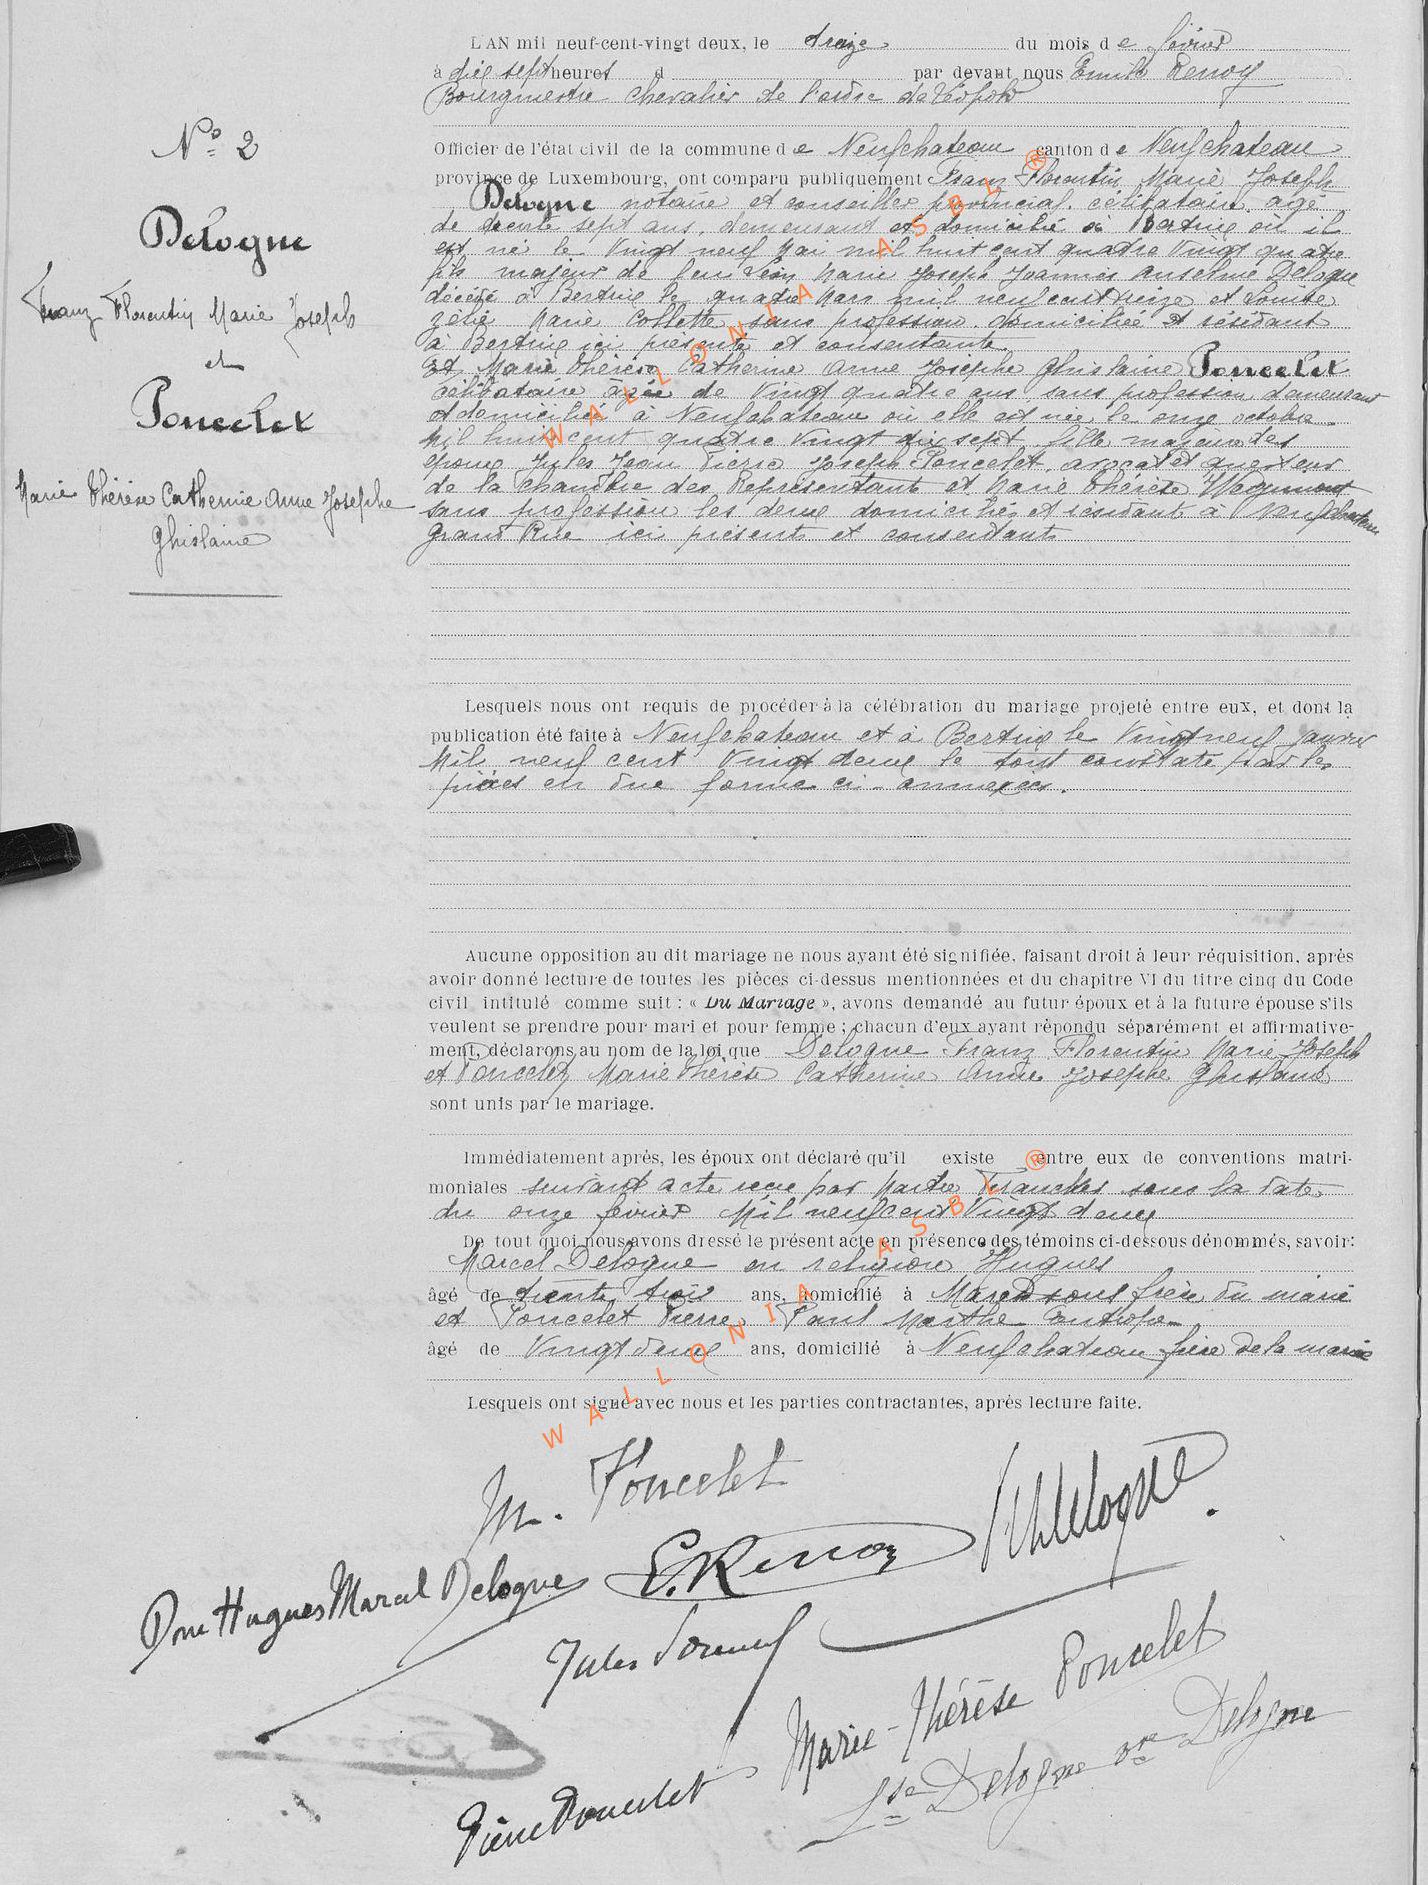 L'AN mil neuf-cent-vingt deux, le treize du mois de février
à dix sept heures d par devant nous Emile Renoy
Bourgmestre chevalier de l'ordre de Léopold
N° 2
Officier de l'état civil de la commune de Neufchateau canton de Neufchateau
province de Luxembourg, ont comparu publiquement Franz Florentin Marie Joseph
Delogne notaire et conseiller provincial, célibataire, agé
de trente sept ans, demeurant et domicilié à Bertrix où il
est né le vingt neuf Mai mil huit cent quatre vingt quatre
fils majeur de feu Léon Marie Joseph Joannès Anselme Delogne
décédé à Bertrix le quatre Mars mil neuf cent treize et Louise
Zélie Marie Collette sans profession domiciliée et résidant
à Bertrix ici présente et consentante.
Et Marie Thérèse Catherine Anne Josèphe Ghislaine Poncelet
célibataire âgée de vingt quatre ans, sans profession demeurant
et domiciliée à Neufchateau où elle est née le onze octobre
mil huit cent quatre vingt dix sept, fille majeure des
époux Jules Jean Pierre Joseph Poncelet, avocat et questeur
de la chambre des Représentants et Marie Thérèse
sans profession les deux domiciliés et résidant à Neufchateau
Grand Rue ici présents et consentants
Delogne
Franz Florentin Marie Joseph
et
Poncelet
Marie Thérèse Catherine Anne Josephe
Ghislaine
Lesquels nous ont requis de procéder à la célébration du mariage projeté entre eux, et dont la
publication été faite à Neufchateau et à Bertrix le vingt neuf janvier
Mil neuf cent vingt deux le tout constaté par les
pièces en due forme ci-annexées.
Aucune opposition au dit mariage ne nous ayant été signifiée, faisant droit à leur réquisition, après
avoir donné lecture de toutes les pièces ci-dessus mentionnées et du chapitre VI du titre cinq du Code
civil intitulé comme suit : « Du Mariage », avons demandé au futur époux et à la future épouse s'ils
veulent se prendre pour mari et pour femme ; chacun d'eux ayant répondu séparément et affirmative-
ment, déclarons au nom de la loi que Delogne Franz Florentin Marie Joseph
et Poncelet Marie Thérèse Catherine Anne Josephe Ghislaine
sont unis par le mariage.
Immédiatement après, les époux ont déclaré qu'il existe entre eux de conventions matri-
moniales suivant acte reçu par Maitre Franck sous la date
du onze février Mil neuf cent vingt deux
De tout quoi nous avons dressé le présent acte en présence des témoins ci-dessous dénommés, savoir:
Marcel Delogne en religion Hugues
âgé de trente trois ans, domicilié à Maredsous frère du marié
et Poncelet Pierre Paul Marthe Eutrope
âgé de vingt deux ans, domicilié à Neufchateau frère de la mariée
Lesquels ont signé avec nous et les parties contractantes, après lecture faite.
M. Poncelet
Delogne
E. Renoy
Dom Hugues Marcel Delogne
Jules Poncelet
Marie-Thérèse Poncelet
Lse Delogne Delogne
Pierre Poncelet
WALLONIA ASBL ®
WALLONIA ASBL ®